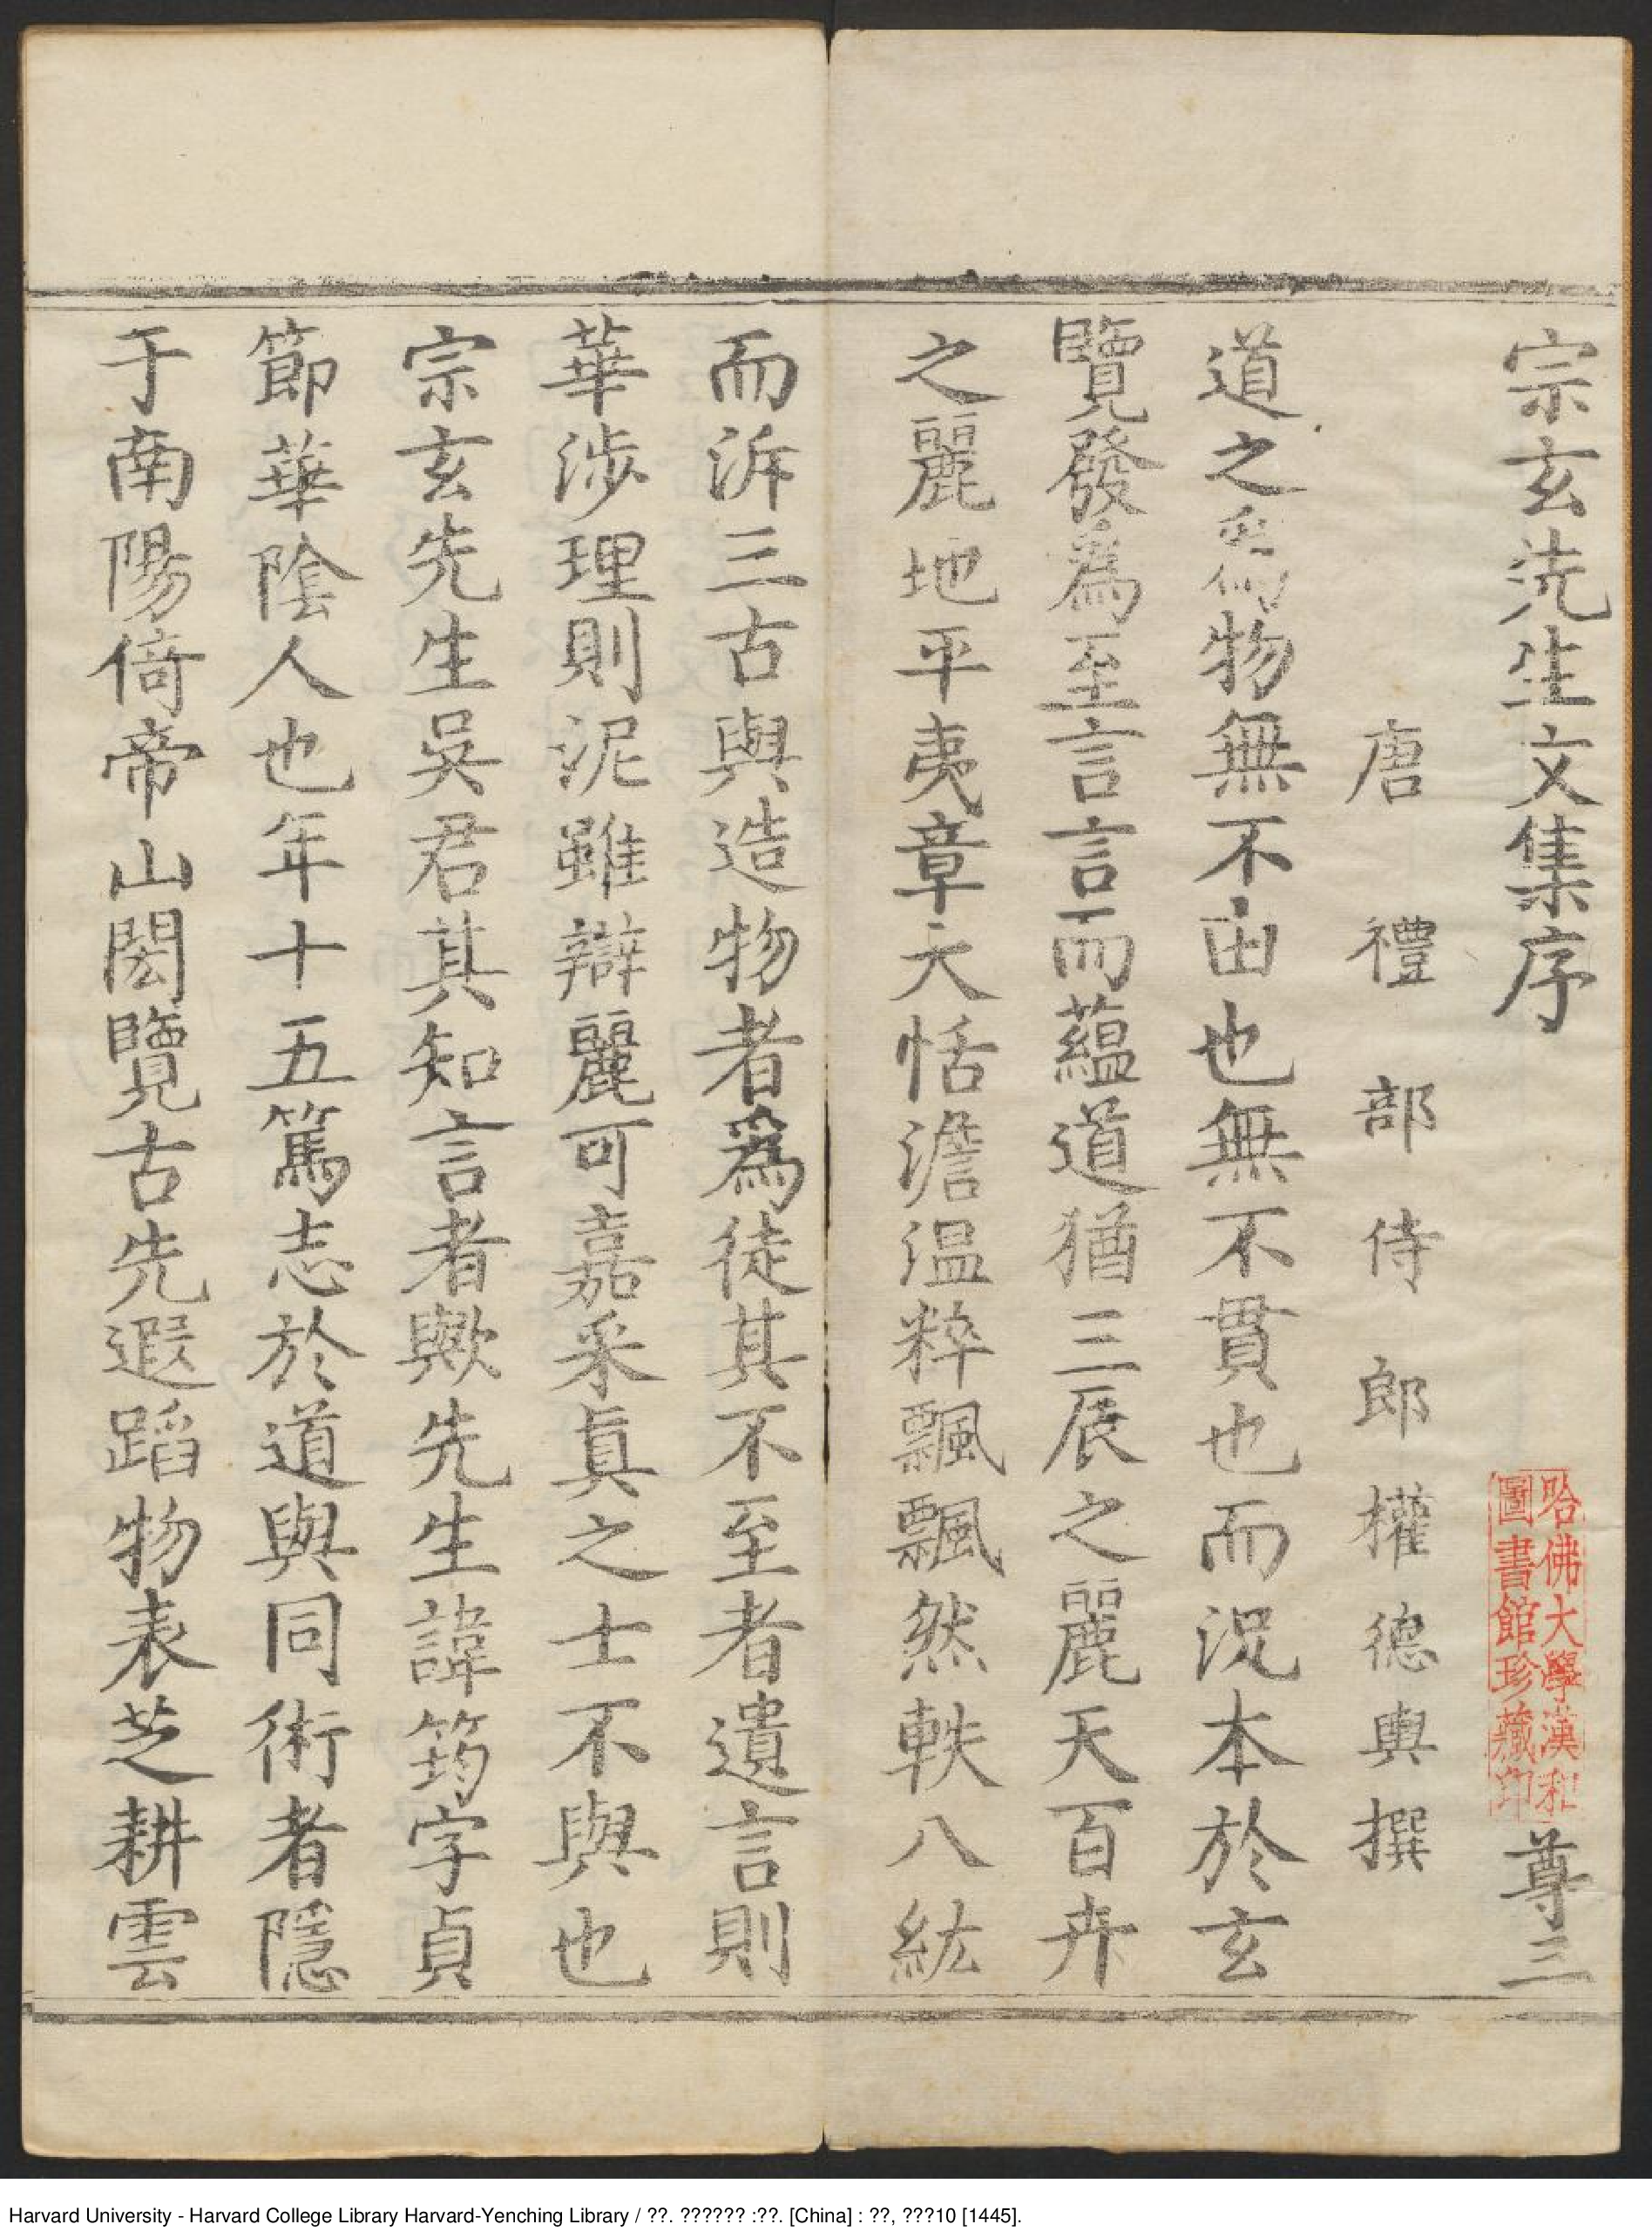 宗玄先生文集序
尊三
哈佛大學漢和
圖書館珍藏印
唐禮部侍郎權德輿撰
道之爲物無不由也無不貫也而況本於玄
覽發爲至言言而蘊道猶三辰之麗天百卉
之麗地平夷章大恬澹温粹飄飄然軼八紘
而泝三古與造物者爲徒其不至者遺言則
華涉理則泥雖辯麗可嘉采眞之士不與也
宗玄先生吳君其知言者歟先生諱筠字貞
節華陰人也年十五篤志於道與同術者隱
于南陽倚帝山閎覽古先遐蹈物表芝耕雲
Harvard University - Harvard College Library Harvard-Yenching Library / ??. ?????? :??. [China] : ??, ???10 [1445].